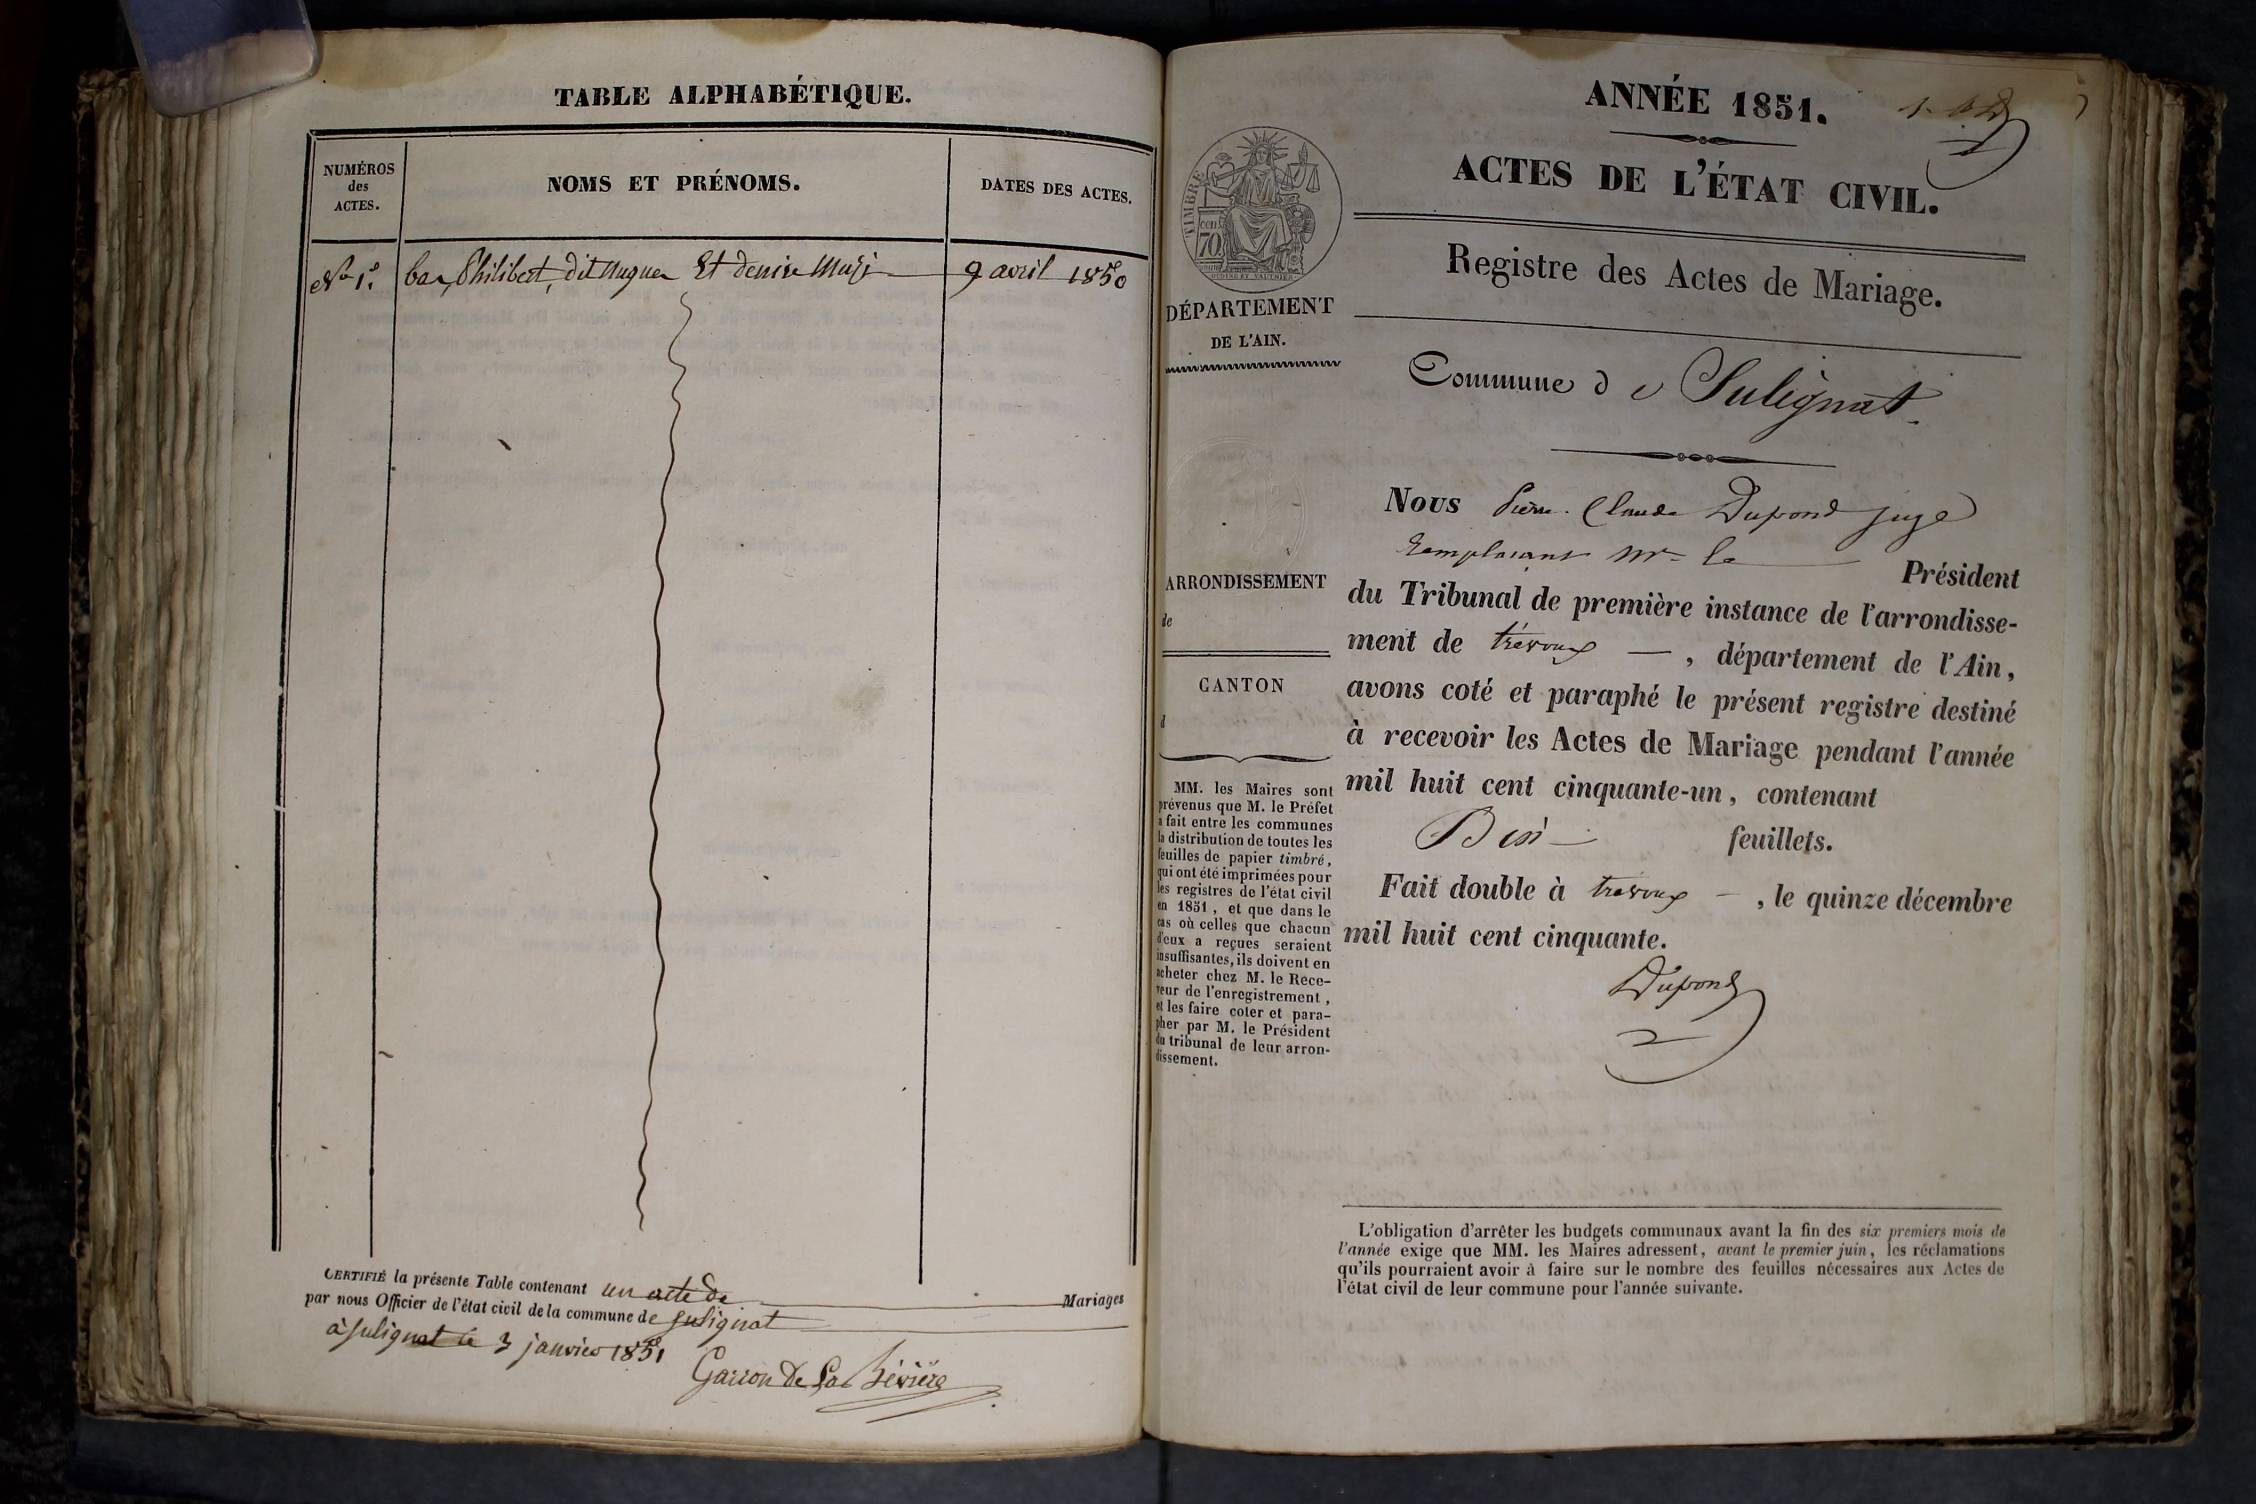 TABLE ALPHABÉTIQUE.
NUMÉROS
des
ACTES.
NOMS ET PRÉNOMS.
DATES DES ACTES.
No 1.° Philibert, dit Et denise 9 avril 1850
CERTIFIÉ la présente Table contenant un acte de Mariages
par nous Officier de l'état civil de la commune de sulignat
à sulignat le 3 janvier 1851
Garron De La Bévière
ANNÉE 1851.
ACTES DE L'ÉTAT CIVIL.
Registre des Actes de Mariage.
TIMBRE
cen.
70.
DÉPARTEMENT
DE L'AIN.
Commune de Sulignat.
ARRONDISSEMENT
de
CANTON
d
MM. les Maires sont
prévenus que M. le Préfet
a fait entre les communes
la distribution de toutes les
feuilles de papier timbré,
qui ont été imprimées pour
les registres de l'état civil
en 1851, et que dans le
cas où celles que chacun
d'eux a reçues seraient
insuffisantes, ils doivent en
acheter chez M. le Rece-
veur de l'enregistrement,
et les faire coter et para-
pher par M. le Président
du tribunal de leur arron-
dissement.
Nous Pierre Claude Dupond juge
remplaçant Mr le Président
du Tribunal de première instance de l'arrondisse-
ment de trévoux —, département de l'Ain,
avons coté et paraphé le présent registre destiné
à recevoir les Actes de Mariage pendant l'année
mil huit cent cinquante-un, contenant
feuillets.
Fait double à trévoux —, le quinze décembre
mil huit cent cinquante.
Dupond
L'obligation d'arrêter les budgets communaux avant la fin des six premiers mois de
l'année exige que MM. les Maires adressent, avant le premier juin, les réclamations
qu'ils pourraient avoir à faire sur le nombre des feuilles nécessaires aux Actes de
l'état civil de leur commune pour l'année suivante.